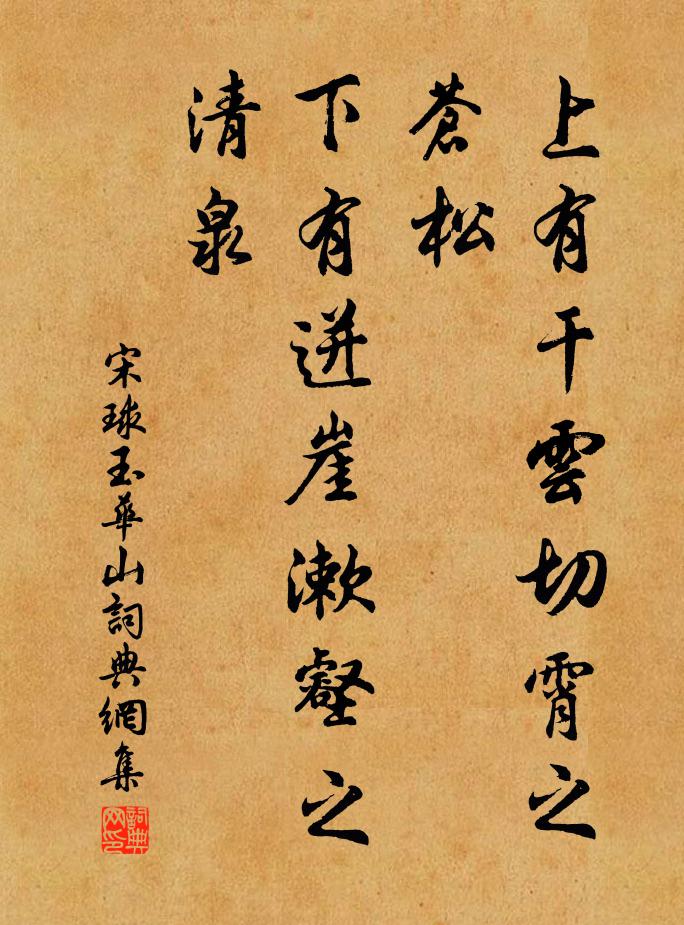 上有干雲切霄之
蒼松
下有迸崖漱壑之
清泉
宋球玉華山詞典網集
詞典网印